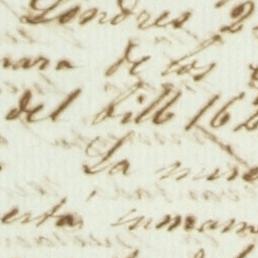 Londres 2
mara de los
del bill 162
La mise
esta inmam